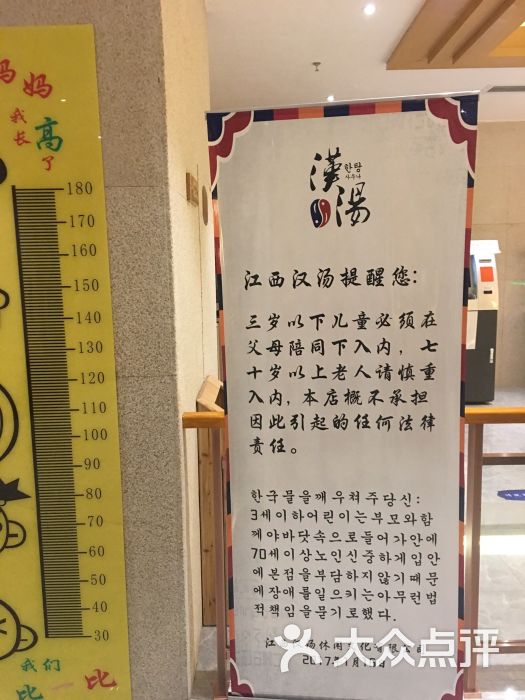 妈妈
我长
高
了
180
170
160
150
140
130
120
110
100
90
80
70
60
50
40
30
我们
比一比
漢 한탕
사우나
湯
江西汉汤提醒您:
三岁以下儿童必须在
父母陪同下入内，七
十岁以上老人请慎重
入内，本店概不承担
因此引起的任何法律
责任。
한국물을깨우쳐주당신:
3세이하어린이는부모와함
께야바닷속으로들어가안에
70세이상노인신중하게입안
에본점을부담하지않기때문
에장애를일으키는아무런법
적책임을묻기로했다.
大众点评